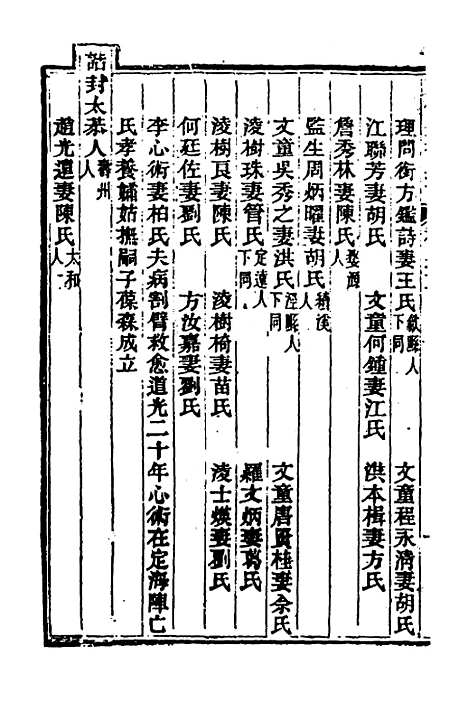 理問銜方鑑詩妻王氏歙縣人下同 文童程永清妻胡氏
江聯芳妻胡氏 文童何鍾妻江氏 洪本楫妻方氏
詹秀林妻陳氏婺源人
監生周炳曜妻胡氏績溪人
文童吳秀之妻洪氏涇縣人下同 文童唐貢桂妻余氏
淩樹珠妻管氏定遠人下同 羅文炳妻葛氏
淩樹艮妻陳氏 淩樹椅妻苗氏 淩士煐妻劉氏
何廷佐妻劉氏 方汝嘉妻劉氏
李心術妻柏氏夫病割臂救愈道光二十年心術在定海陣亡
氏孝養舖姑撫嗣子葆森成立
誥封太恭人壽州人
趙光遣妻陳氏太和人